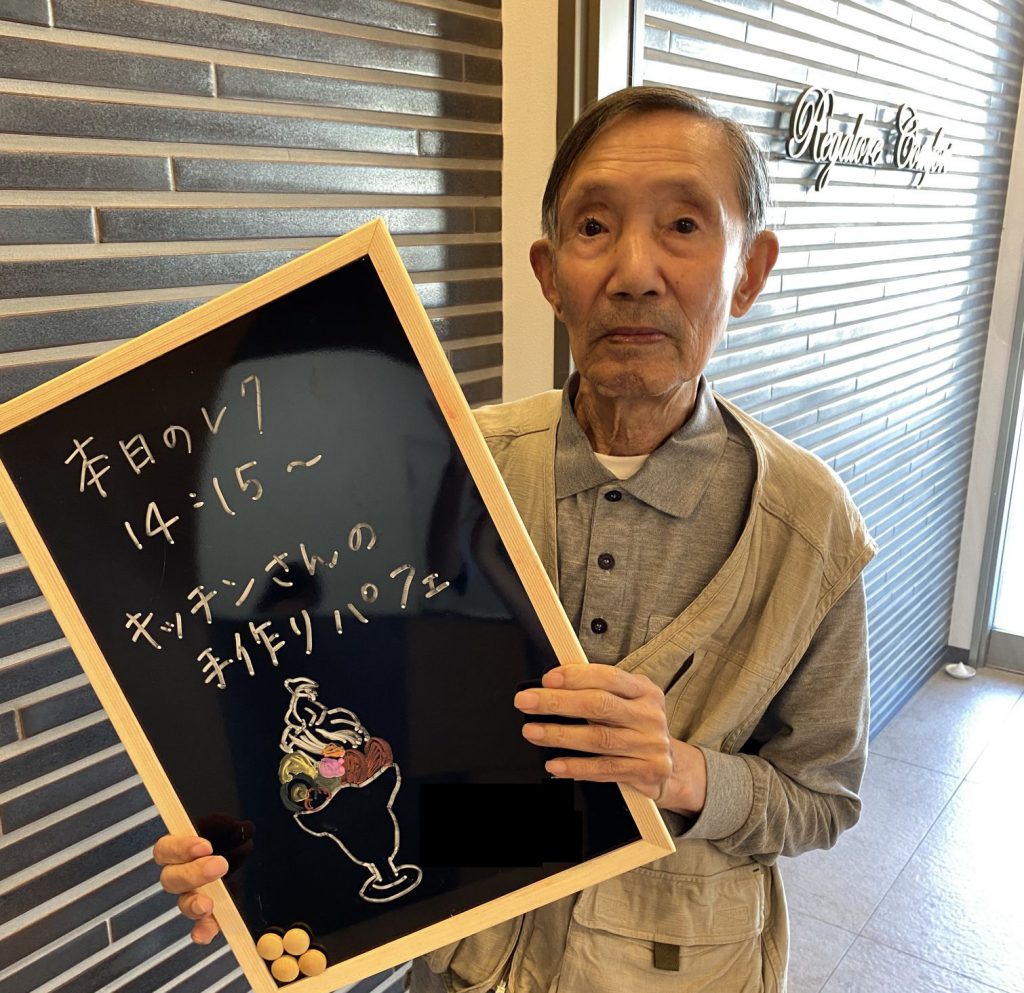 本日のレク
14:15~
キッチンさんの
手作りパフェ